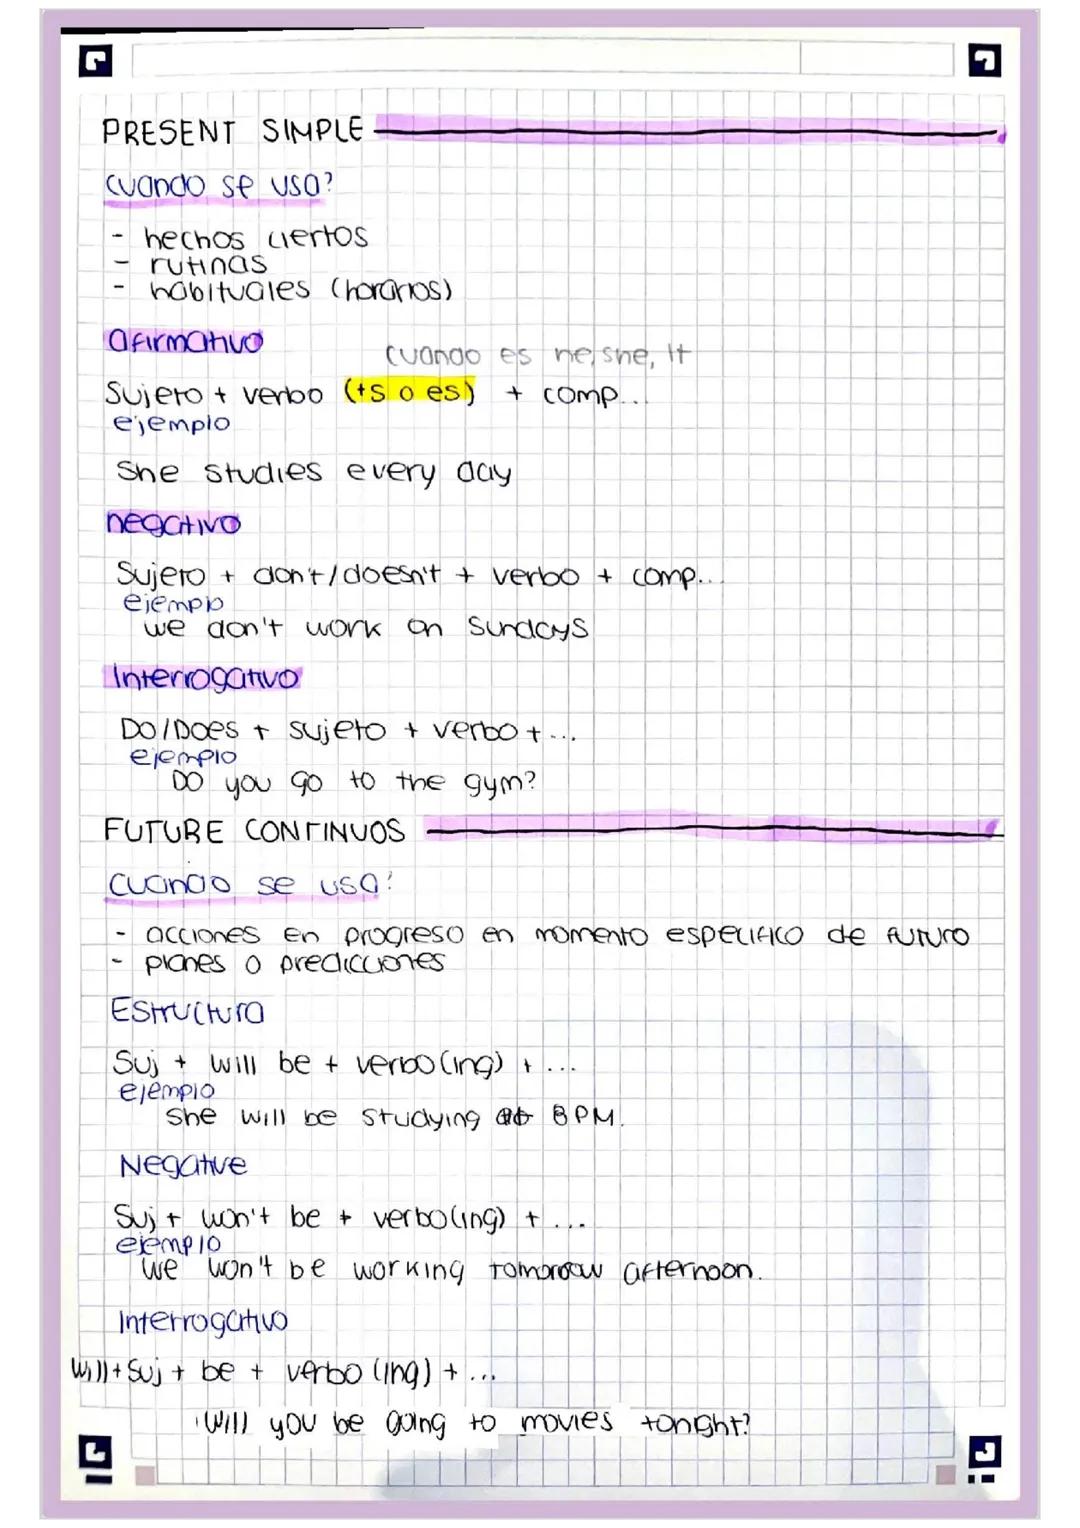 PRESENT SIMPLE
cuando se usa?
- hechos ciertos
- rutinas
- habituales (horarios)
afirmativo
cuando es he, she, it
Sujeto + verbo (+s o es) + comp...
ejemplo
She studies every day
negativo
Sujeto + don't/doesn't + verbo + comp...
ejemplo
we don't work on Sundays
Interrogativo
Do/Does + sujeto + verbo + ...
ejemplo
Do you go to the gym?
FUTURE CONTINUOS
cuando se usa?
- acciones en progreso en momento especifico de futuro
- planes o predicciones
Estructura
Suj + will be + verbo (ing) + ...
ejemplo
She will be studying at 8 PM.
Negative
Suj + won't be + verbo (ing) + ...
ejemplo
we won't be working tomorrow afternoon.
Interrogativo
Will + Suj + be + verbo (ing) + ...
Will you be going to movies tonight?